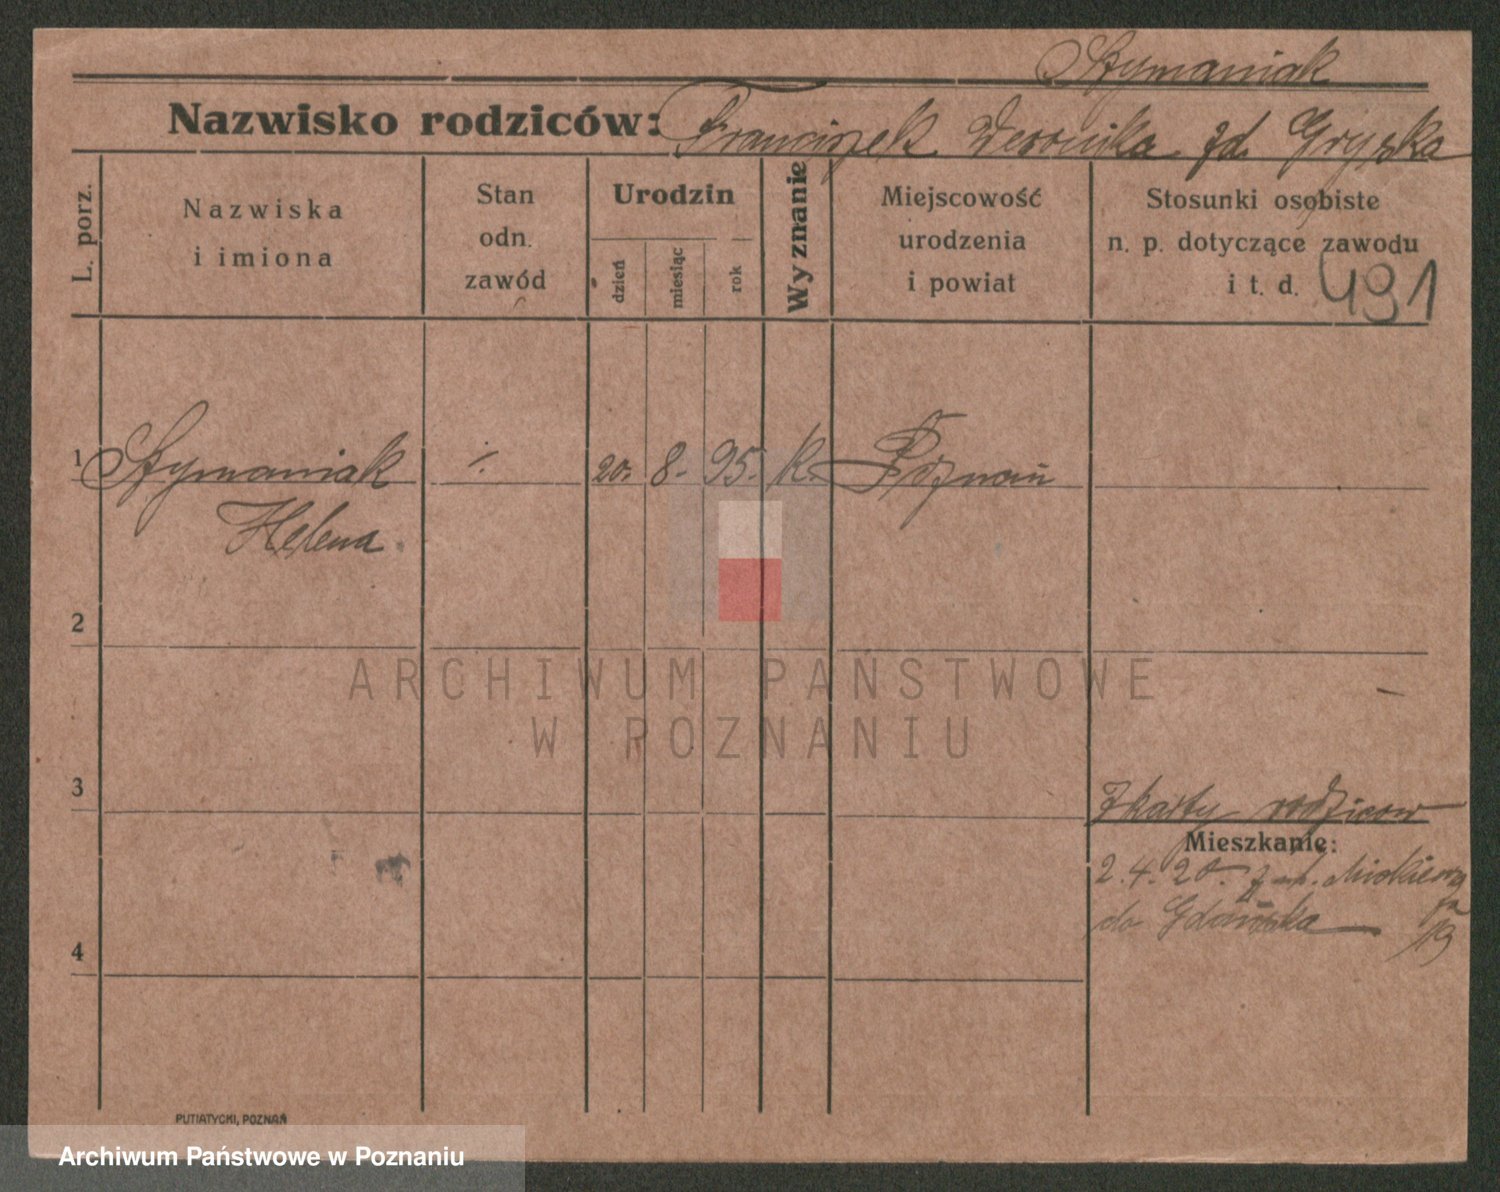 Szymaniak
Nazwisko rodziców: Franciszek Weronika zd. Gryska
L. porz.
Nazwiska
i imiona
Stan
odn.
zawód
Urodzin
dzień
miesiąc
rok
Wyznanie
Miejscowość
urodzenia
i powiat
Stosunki osobiste
n. p. dotyczące zawodu
i t. d. 491
1 Szymaniak ·/. 20. 8. 95. K. Poznań
Helena
2
ARCHIWUM PAŃSTWOWE
W POZNANIU
3
Z karty rodziców
Mieszkanie:
2.4.20. z
do Gdańska 19
4
PUTIATYCKI, POZNAŃ
Archiwum Państwowe w Poznaniu